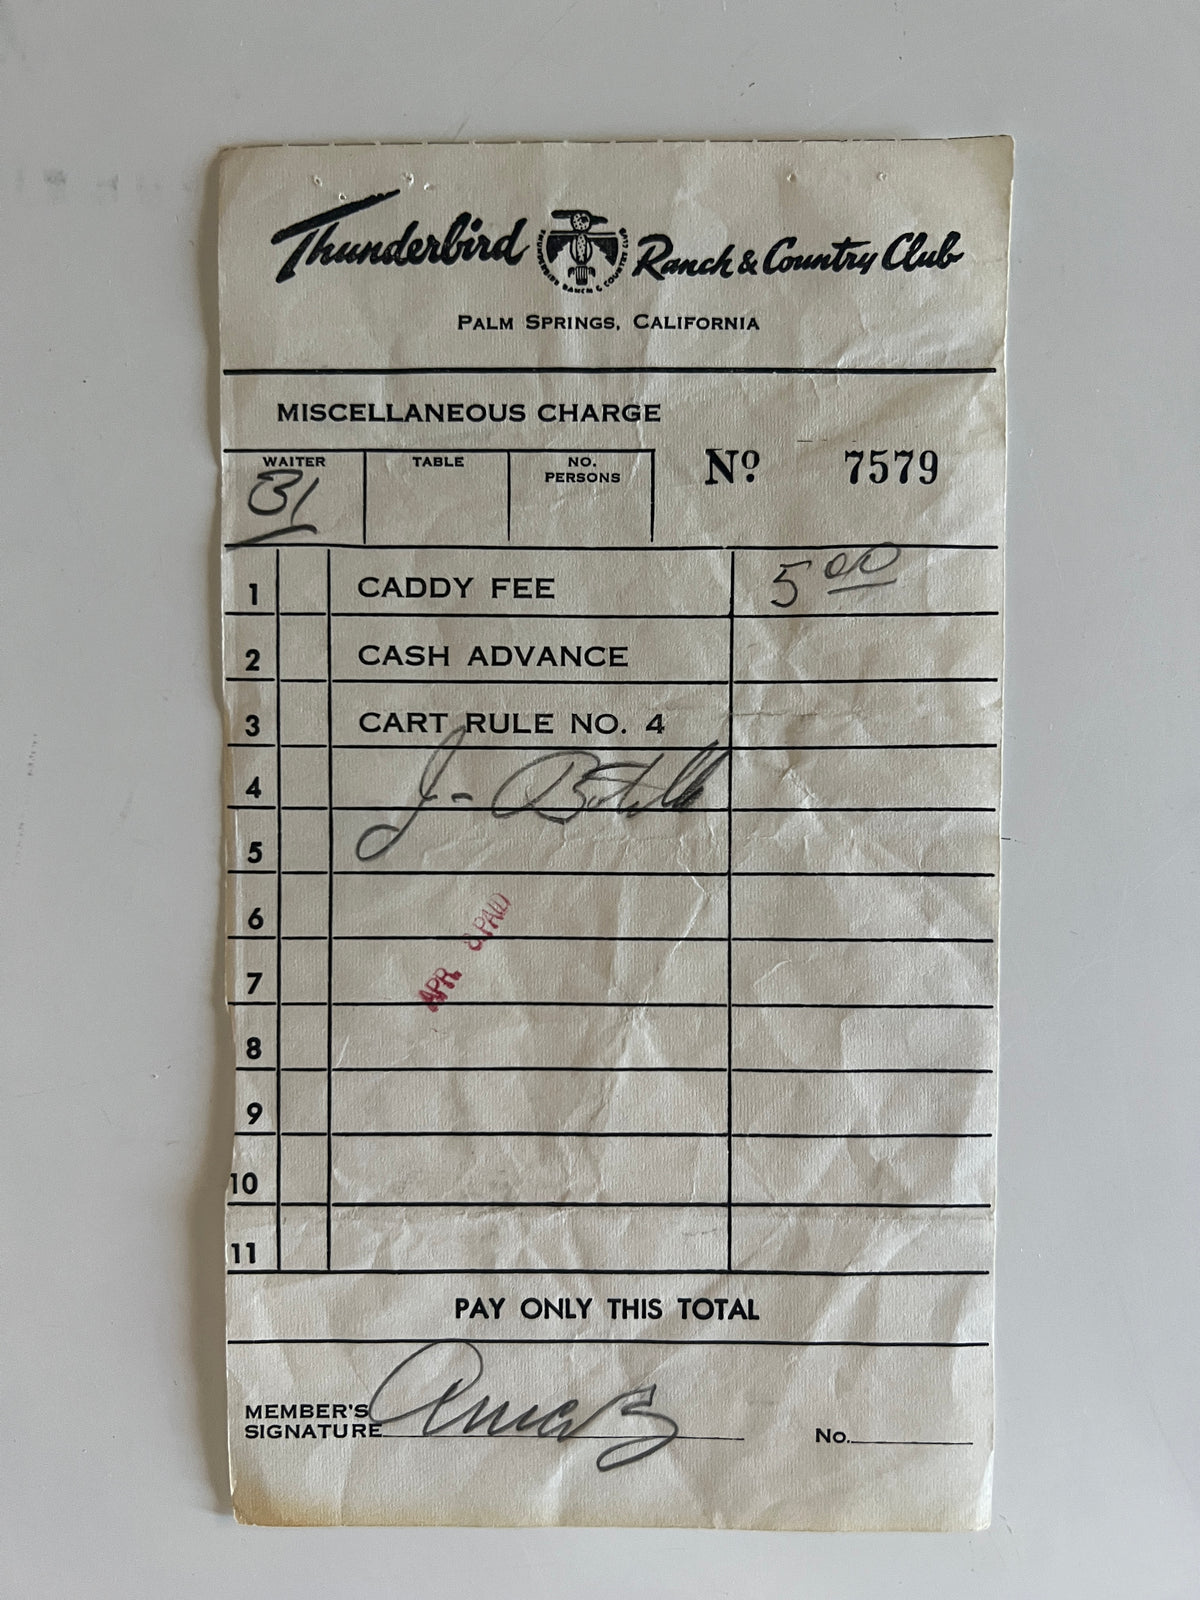 Thunderbird Ranch & Country Club
THUNDERBIRD RANCH & COUNTRY CLUB
PALM SPRINGS, CALIFORNIA
MISCELLANEOUS CHARGE
WAITER TABLE NO. PERSONS
31
Nº 7579
1 CADDY FEE 5 00
2 CASH ADVANCE
3 CART RULE NO. 4
4 J-
5
6
PAID
7
APR.
8
9
10
11
PAY ONLY THIS TOTAL
MEMBER'S
SIGNATURE No.